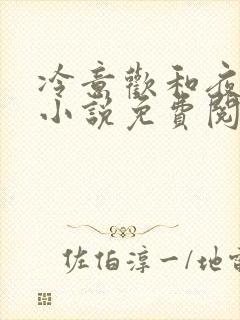 冷意歡和夜
小說免費閱
佐伯淳一/地